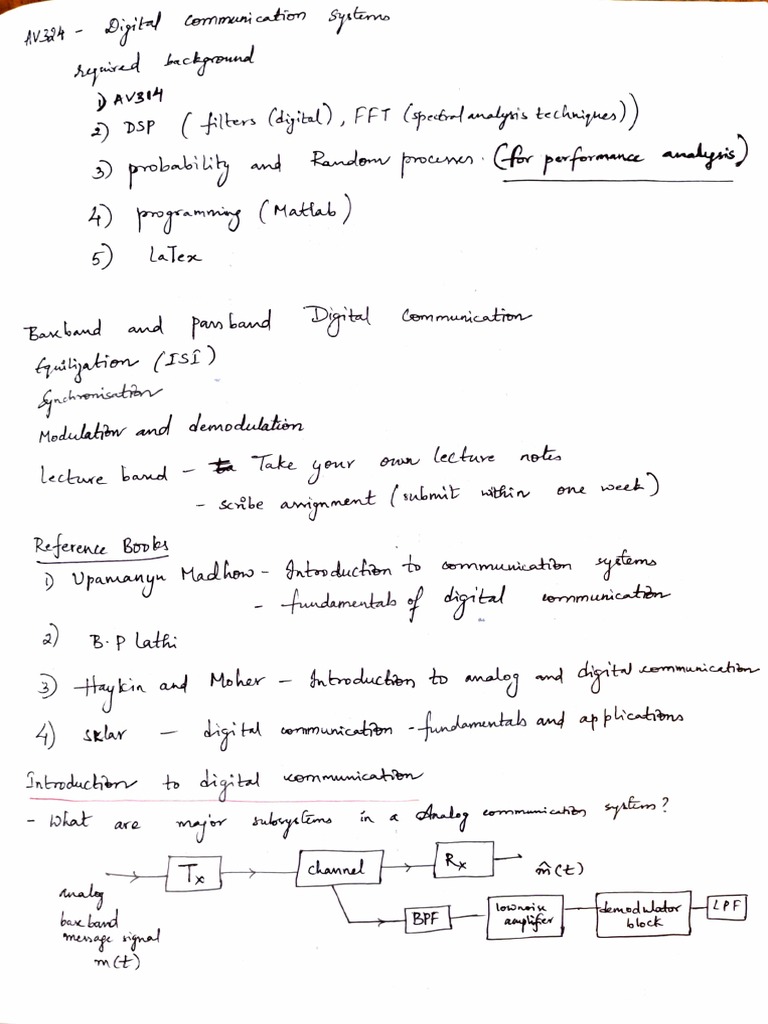 AV324 - Digital communication systems
required background
1) AV314
2) DSP ( filters (digital), FFT (spectral analysis techniques))
3) probability and Random processes. (for performance analysis)
4) programming (Matlab)
5) LaTex
Baseband and passband Digital Communication
Equilization (ISI)
Synchronisation
Modulation and demodulation
Lecture based - Take your own lecture notes
- scribe assignment (submit within one week)
Reference Books
1) Upamanyu Madhow - Introduction to communication systems
- fundamentals of digital communication
2) B.P Lathi
3) Haykin and Moher - Introduction to analog and digital communication
4) Sklar - digital communication - fundamentals and applications
Introduction to digital communication
- What are major subsystems in a Analog communication system?
Tx channel Rx m̂(t)
analog
baseband
message signal
m(t)
BPF low noise amplifier demodulator block LPF